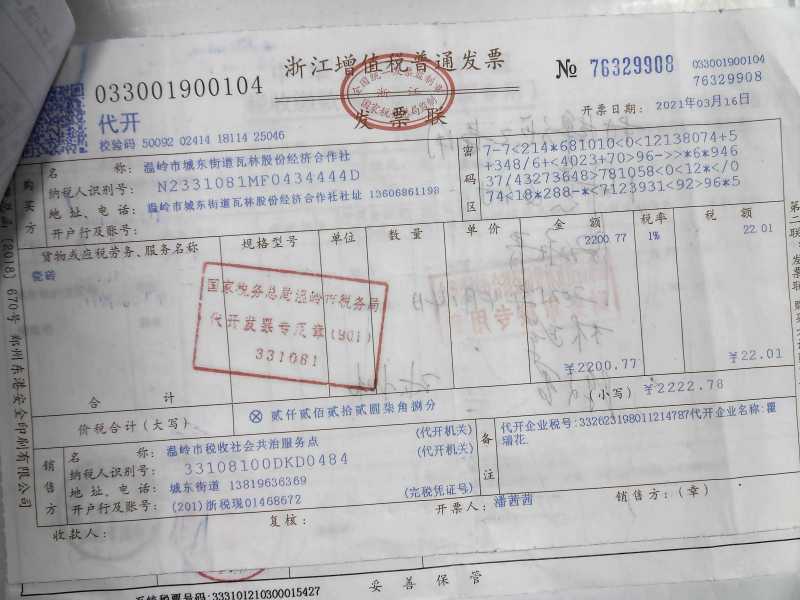 浙江增值税普通发票
033001900104
№ 76329908
033001900104
76329908
代开
发票联
全国统一发票监制章
浙江
国家税务总局监制
开票日期: 2021年03月16日
校验码 50092 02414 18114 25046
购买方
名 称: 温岭市城东街道瓦林股份经济合作社
纳税人识别号: N2331081MF0434444D
地 址、电 话: 温岭市城东街道瓦林股份经济合作社社址 13606861198
开户行及账号:
密码区
7-7<214*681010<0<12138074+5
+348/6+<4023+70>96->>*6*946
37/43273648>781058<0<12*</0
74<18*288-*<7123931<92>96*5
货物或应税劳务、服务名称 规格型号 单位 数量 单价 金额 税率 税额
瓷砖 2200.77 1% 22.01
国家税务总局温岭市税务局
代开发票专用章(901)
331081
合 计 ¥2200.77 ¥22.01
价税合计(大写) ⊗ 贰仟贰佰贰拾贰圆柒角捌分 (小写) ¥2222.78
销售方
名 称: 温岭市税收社会共治服务点 (代开机关)
纳税人识别号: 33108100DKD0484 (代开机关)
地 址、电 话: 城东街道 13819636369
开户行及账号: (201)浙税现01468672 (完税凭证号)
备注
代开企业税号:332623198011214787代开企业名称:瞿
瑞花
收款人: 复核: 开票人: 潘茜茜 销售方:(章)
(2018)670号 郑州东港安全印刷有限公司
第二联 发票联
妥善保管
系统税票号码:333101210300015427